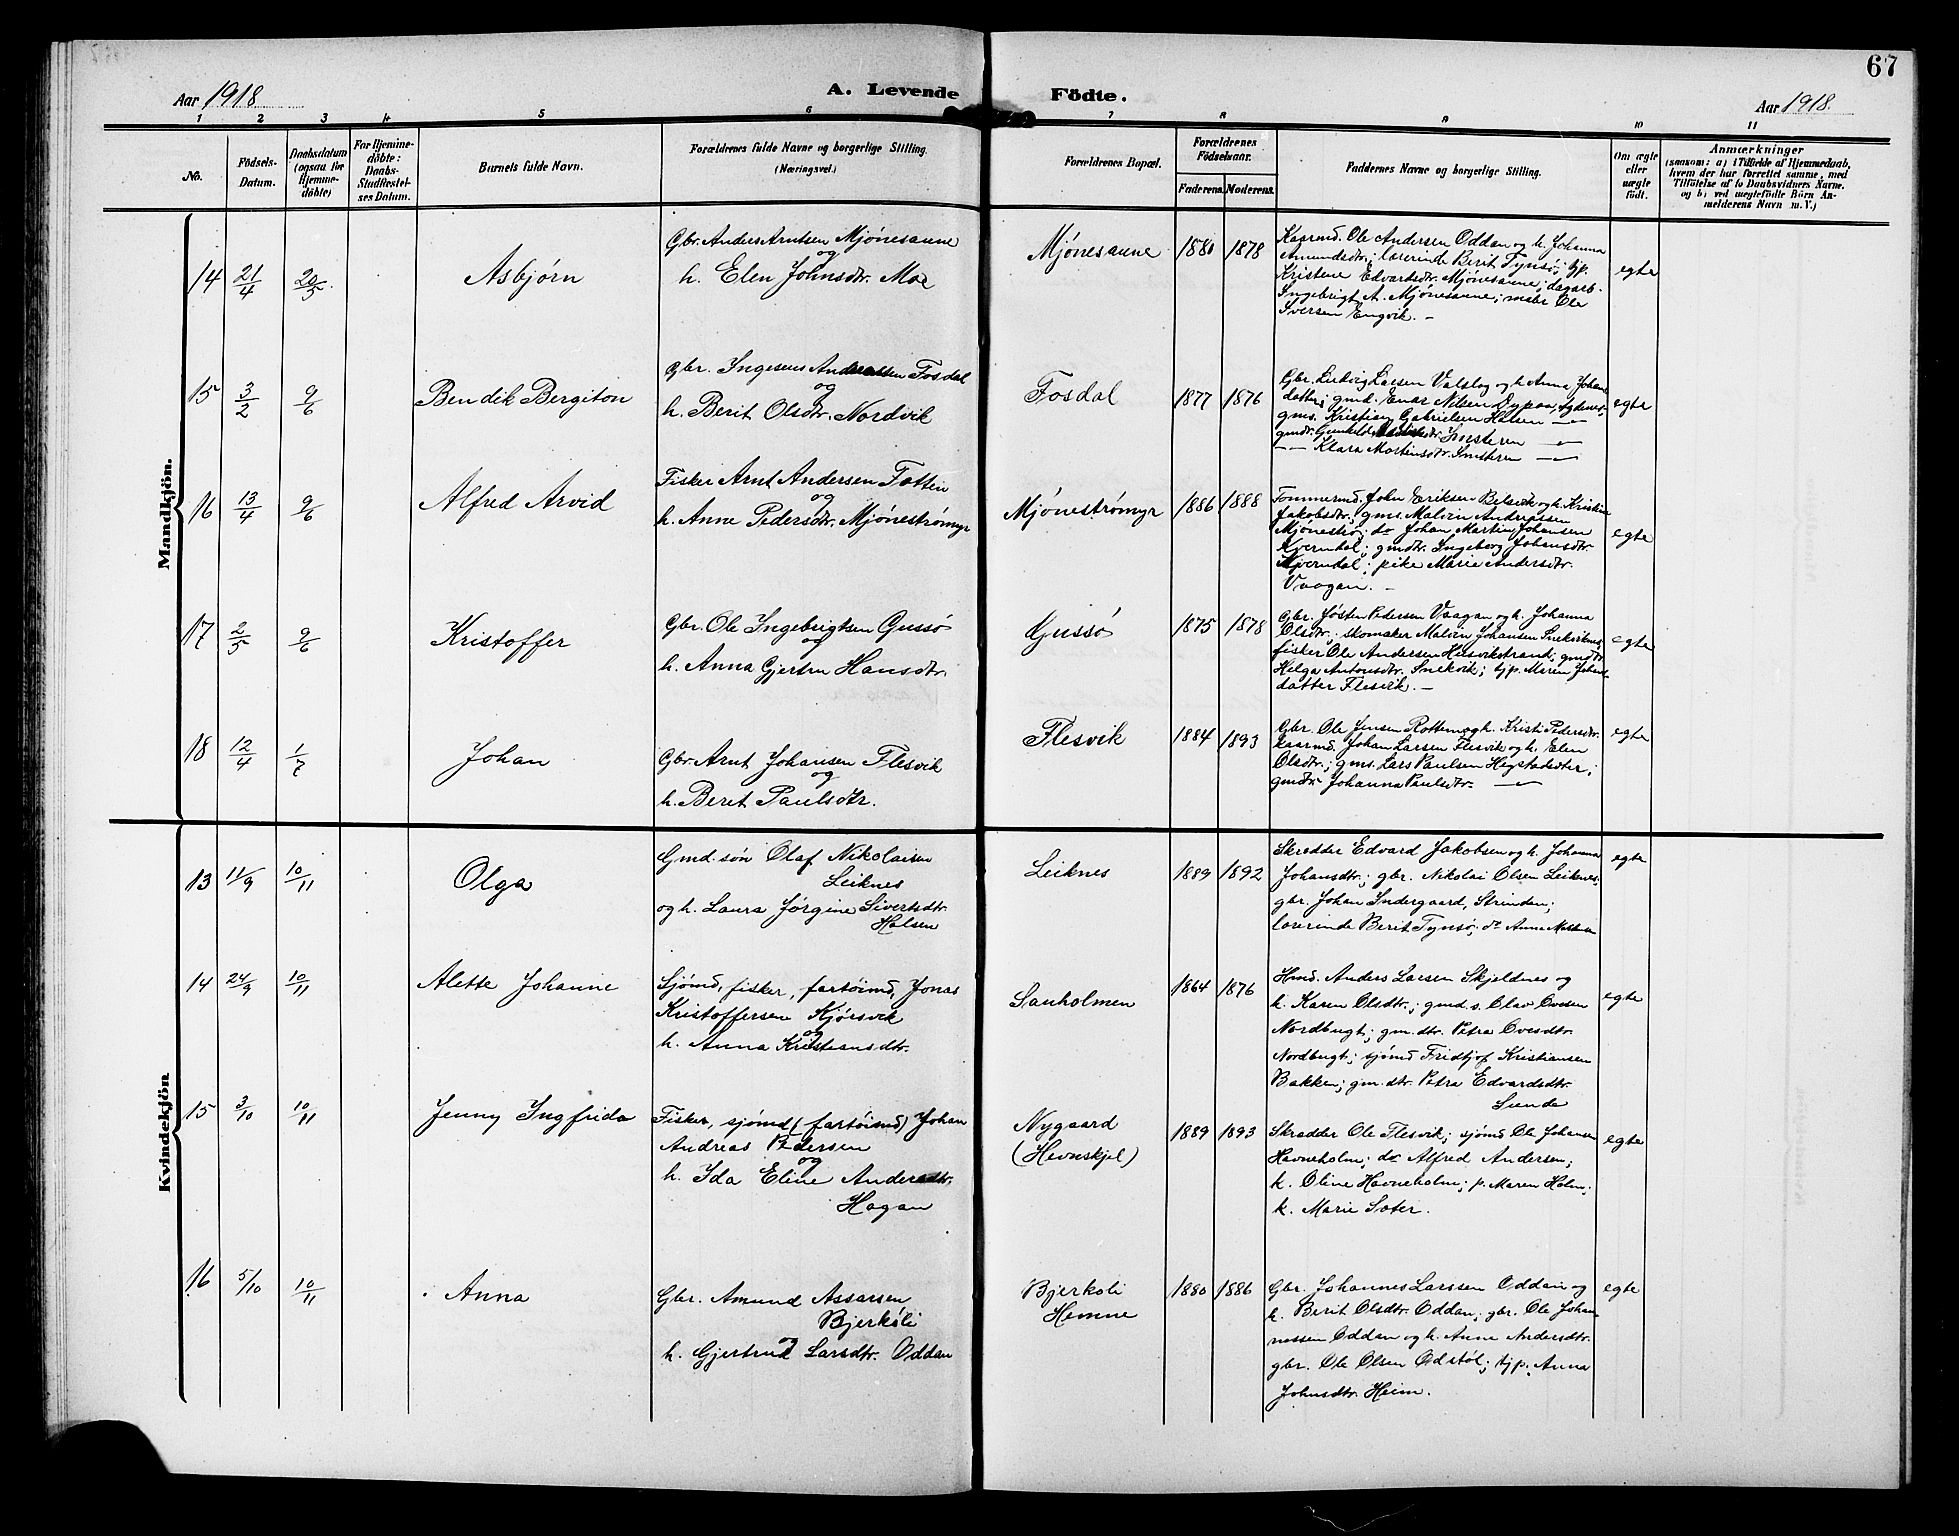 67
Aar 1918
A. Levende Födte.
Aar 1918.
1 2 3 4 5 6 7 8 9 10 11
No.
Födsels-
Datum.
Daabsdatum
(ogsaa for
Hjemme-
döbte)
For Hjemme-
döbte:
Daabs-
Stadfæstel-
ses Datum.
Barnets fulde Navn.
Forældrenes fulde Navne og borgerlige Stilling.
(Næringsvei.)
Forældrenes Bopæl.
Forældrenes
Födselsaar.
Faderens.
Moderens.
Faddernes Navne og borgerlige Stilling.
Om ægte
eller
uægte
födt.
Anmærkninger
(saasom: a) i Tilfælde af Hjemmedaab,
hvem der har forrettet samme, med
Tilföielse af to Daabsvidners Navne,
og b) ved uægtefödte Börn An-
melderens Navn m. V.)
Mandkjön.
14 21/4 20/5. Asbjørn
Gbr. Anders Arntsen Mjönesaune
og
h. Elen Johnsdtr. Moe
Mjönesaune 1880 1878
Kaarmd. Ole Andersen Oddan og h. Johanna
Amundsdtr.; lærerinde Berit Tynsø; tjp.
Kristene Edvartsdtr. Mjönesaune; dagarb.
Ingebrigt A. Mjönesaune; møbr Ole
Iversen Engvik. -
egte
15 3/2 9/6 Bendik Bergiton
Gbr. Andreassen Fosdal
og
h. Berit Olsdtr. Nordvik
Fosdal 1877 1876
Gbr. Ludvig Larsen Valslag og h. Anna Johans
datter; gmd. Enar Nilsen Agdenes;
gms. Kristian Gabrielsen Halsen -"-
gmdtr. Gunhild Smsteren -"-
-"- Klara Mortensdtr. Smsteren -"-
egte
16 13/4 9/6 Alfred Arvid
Fisker Arnt Andersen Fætten
og
h. Anne Pedersdtr. Mjönestrømyr
Mjönestrømyr 1886 1888
Tømmermd. John Eriksen og h. Kristine
Jakobsdtr.; gms. Malvin Andreassen
Mjönestrø; do Johan Martin Johansen
Kverndal; gmdtr. Ingeborg Johansdtr.
Kverndal; pike Marie Andersdtr.
Vaagan. -
egte
17 2/5 9/6 Kristoffer
Gbr. Ole Ingebrigtsen Gussö
og
h. Anna Gjertru Hansdtr.
Gussö 1875 1878
Gbr. Jøsten Pedersen Vaagan og h. Johanna
Olsdtr.; skomaker Malvin Johansen Snekviknes;
fisker Ole Andersen Husvikstrand; gmdtr.
Helga Antonsdtr. Snekvik; tjp. Maren Johans
datter Flesvik. -
egte
18 12/4 1/7 Johan
Gbr. Arnt Johansen Flesvik
og
h. Berit Paulsdtr.
Flesvik 1884 1893
Gbr. Ole Jensen Rottem og h. Kristi Pedersdtr.
kaarmd. Johan Larsen Flesvik og h. Elen
Olsdtr.; gms. Lars Paulsen Hegstadsæter;
gmdtr. Johanna Paulsdtr. -"-
egte
Kvindekjön
13 11/9 10/11 Olga
Gmd. søn Olaf Nikolaisen
Leiknes
og h. Laura Jørgine Sivertsdtr.
Halsen
Leiknes 1889 1892
Skredder Edvard Jakobsen og h. Johanna
Johansdtr.; gbr. Nikolai Olsen Leiknes;
gbr. Johan Indergaard, Strinden;
lærerinde Berit Tynsø; do Anna
egte
14 24/9 10/11 Alette Johanne
Sjömd, fisker, fartöimd, Jonas
Kristoffersen Kjörsvik
og
h. Anna Kristiansdtr.
Sauholmen 1864 1876
Hmd. Anders Larsen Skjeldnes og
h. Karen Olsdtr.; gmd. s. Olav Ovesen
Nordbugt; gm. dtr. Petra Ovesdtr.
Nordbugt; sjömd Fridtjof Kristiansen
Bakken; gm. dtr. Petra Edvardsdtr.
Sunde
egte
15 3/10 10/11 Jenny Ingfrida
Fisker, sjömd (fartöimd) Johan
Andreas Pedersen
og
h. Ida Eline Andersdtr.
Hagan
Nygaard
(Hevnskjel)
1889 1893
Skradder Ole Flesvik; sjömd Ole Johansen
Havneholm; do Alfred Andersen;
k. Oline Havneholm; p. Maren Holm;
k. Marie Sæter.
egte
16 5/10 10/11 Anna
Gbr. Amund Assarsen
Bjerköli
og
h. Gjertrud Larsdtr. Oddan
Bjerkøli
Hemne
1880 1886
Gbr. Johannes Larssen Oddan og
h. Berit Olsdtr. Oddan; gbr. Ole Johan-
nessen Oddan og h. Anne Andersdtr.
gbr. Ole Olsen Odstöl; tjp. Anna
Johnsdtr. Heim.
egte